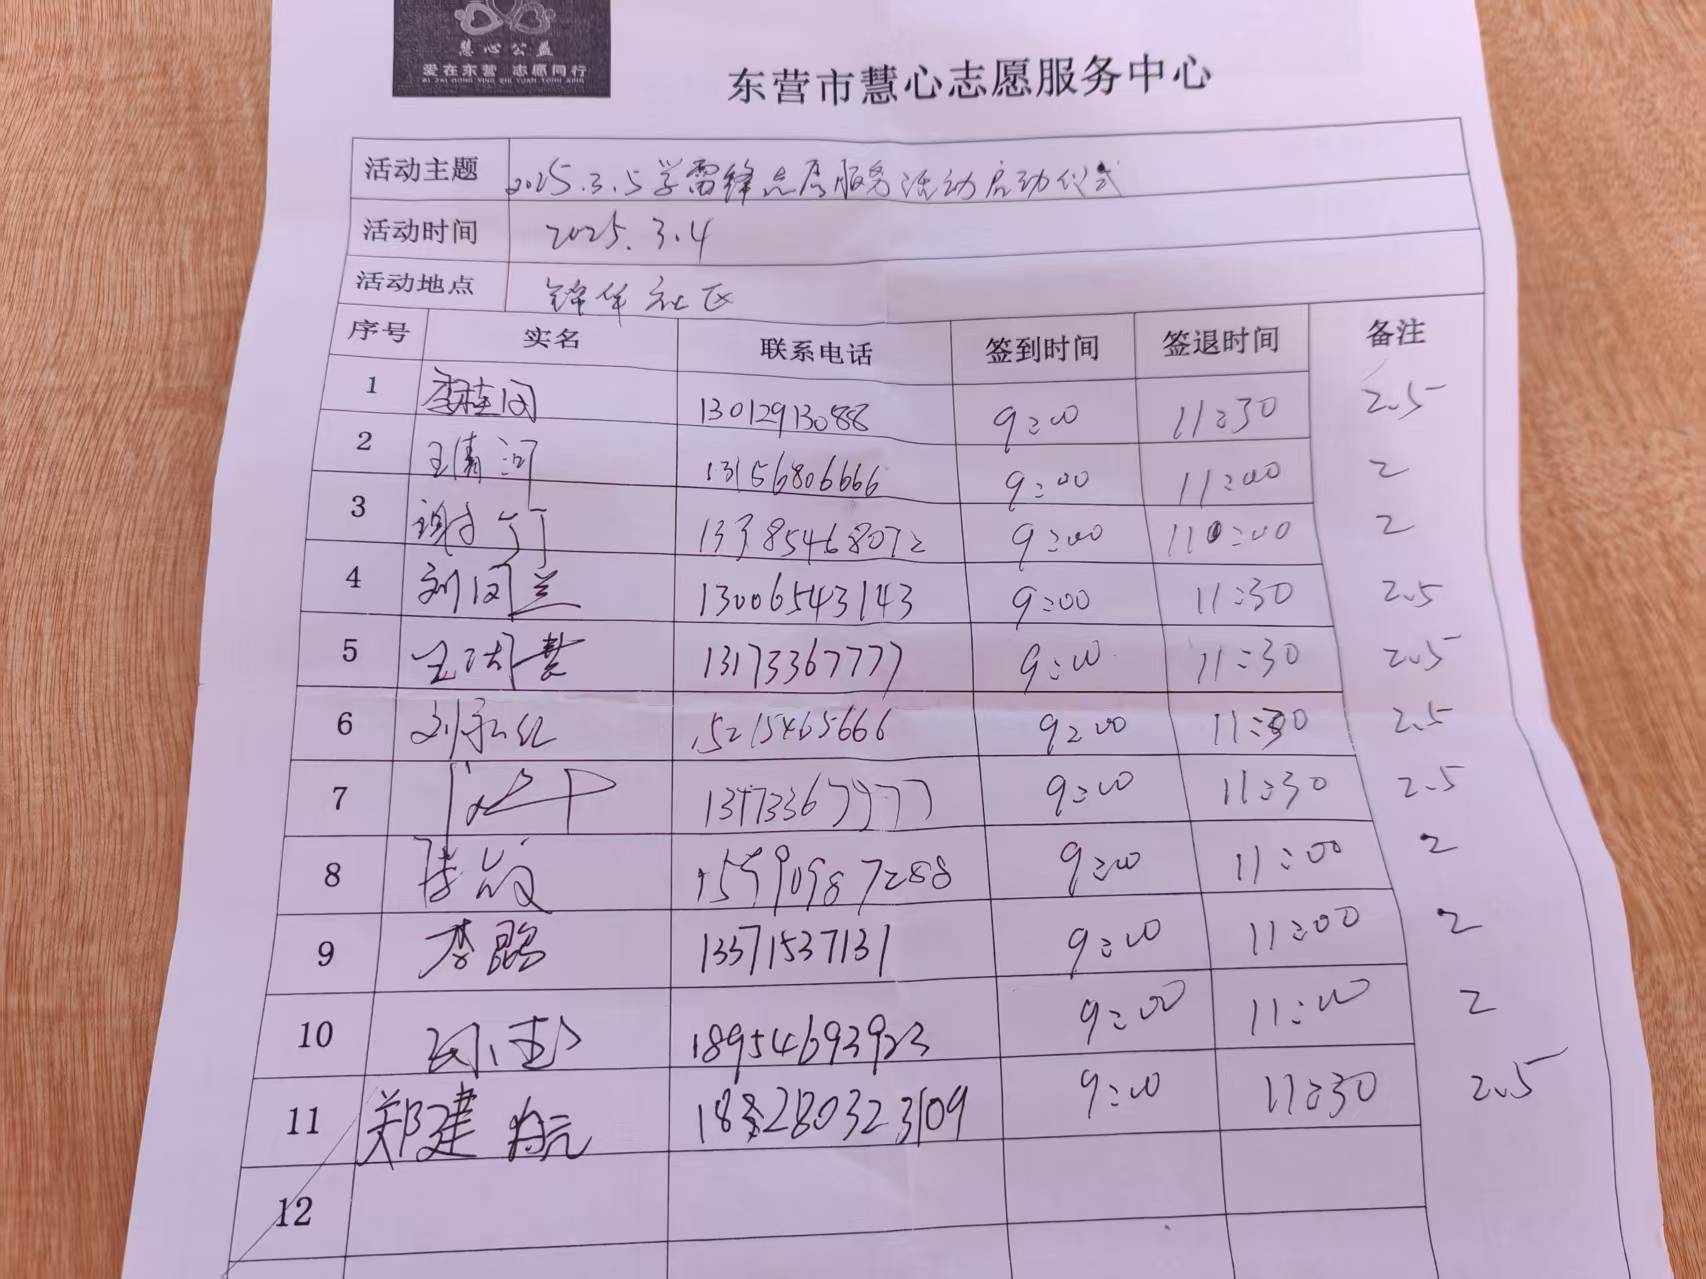 慧心公益
爱在东营 志愿同行
AI ZAI DONG YING ZHI YUAN TONG XING
东营市慧心志愿服务中心
活动主题 2025.3.5学雷锋志愿服务活动启动仪式
活动时间 2025.3.4
活动地点 锋华社区
序号 实名 联系电话 签到时间 签退时间 备注
1 李桂闵 13012913088 9:00 11:30 2.5
2 王清河 13156806666 9:00 11:00 2
3 13385468072 9:00 11:00 2
4 刘闵兰 13006543143 9:00 11:30 2.5
5 13173367777 9:00 11:30 2.5
6 刘永红 15215465666 9:00 11:30 2.5
7 9:00 11:30 2.5
8 15590987288 9:00 11:00 2
9 李聪 13371537131 9:00 11:00 2
10 18954693923 9:00 11:00 2
11 郑建 9:00 11:30 2.5
12